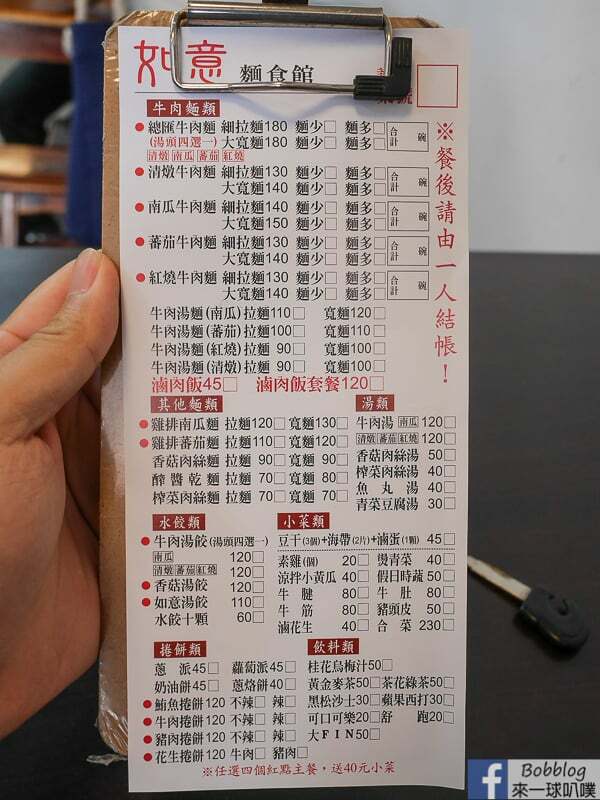 如意 麵食館
桌號
※餐後請由一人結帳！
牛肉麵類
總匯牛肉麵 細拉麵180 麵少□ 麵多□ 合計 碗
(湯頭四選一) 大寬麵180 麵少□ 麵多□
清燉 南瓜 蕃茄 紅燒
清燉牛肉麵 細拉麵130 麵少□ 麵多□ 合計 碗
大寬麵140 麵少□ 麵多□
南瓜牛肉麵 細拉麵140 麵少□ 麵多□ 合計 碗
大寬麵150 麵少□ 麵多□
蕃茄牛肉麵 細拉麵130 麵少□ 麵多□ 合計 碗
大寬麵140 麵少□ 麵多□
紅燒牛肉麵 細拉麵130 麵少□ 麵多□ 合計 碗
大寬麵140 麵少□ 麵多□
牛肉湯麵(南瓜)拉麵110□ 寬麵120□
牛肉湯麵(蕃茄)拉麵100□ 寬麵110□
牛肉湯麵(紅燒)拉麵 90□ 寬麵100□
牛肉湯麵(清燉)拉麵 90□ 寬麵100□
滷肉飯45□ 滷肉飯套餐120□
其他麵類
雞排南瓜麵 拉麵120□ 寬麵130□
雞排蕃茄麵 拉麵110□ 寬麵120□
香菇肉絲麵 拉麵 90□ 寬麵 90□
酢醬乾麵 拉麵 70□ 寬麵 80□
榨菜肉絲麵 拉麵 70□ 寬麵 70□
湯類
牛肉湯 南瓜 120□
清燉 蕃茄 紅燒 120□
香菇肉絲湯 50□
榨菜肉絲湯 40□
魚丸湯 40□
青菜豆腐湯 30□
水餃類
牛肉湯餃(湯頭四選一)
南瓜 120□
清燉 蕃茄 紅燒 120□
香菇湯餃 120□
如意湯餃 110□
水餃十顆 60□
小菜類
豆干(3個)+海帶(2片)+滷蛋(1顆) 45□
素雞(個) 20□ 燙青菜 40□
涼拌小黃瓜 40□ 假日時蔬 50□
牛腱 80□ 牛肚 80□
牛筋 80□ 豬頭皮 50□
滷花生 40□ 合菜 230□
捲餅類
蔥派45□ 蘿蔔派45□
奶油餅 45□ 蔥烙餅 40□
鮪魚捲餅120 不辣□ 辣□
牛肉捲餅120 不辣□ 辣□
豬肉捲餅120 不辣□ 辣□
花生捲餅120 牛肉□ 豬肉□
飲料類
桂花烏梅汁50□
黃金麥茶50□ 茶花綠茶50□
黑松沙士30□ 蘋果西打30□
可口可樂20□ 舒跑20□
大FIN50□
※任選四個紅點主餐，送40元小菜
Bobblog
來一球叭噗